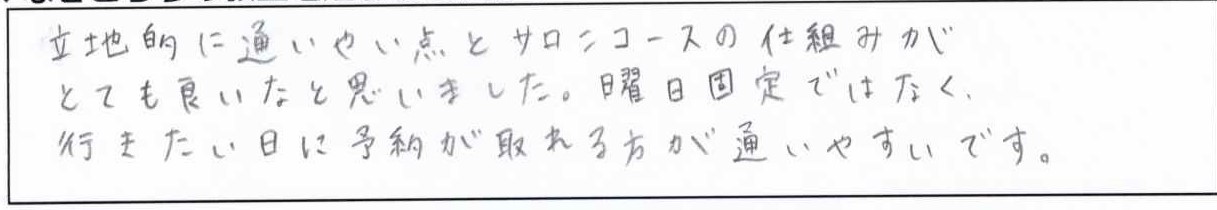 立地的に通いやい点とサロンコースの仕組みが
とても良いなと思いました。曜日固定ではなく、
行きたい日に予約が取れる方が通いやすいです。